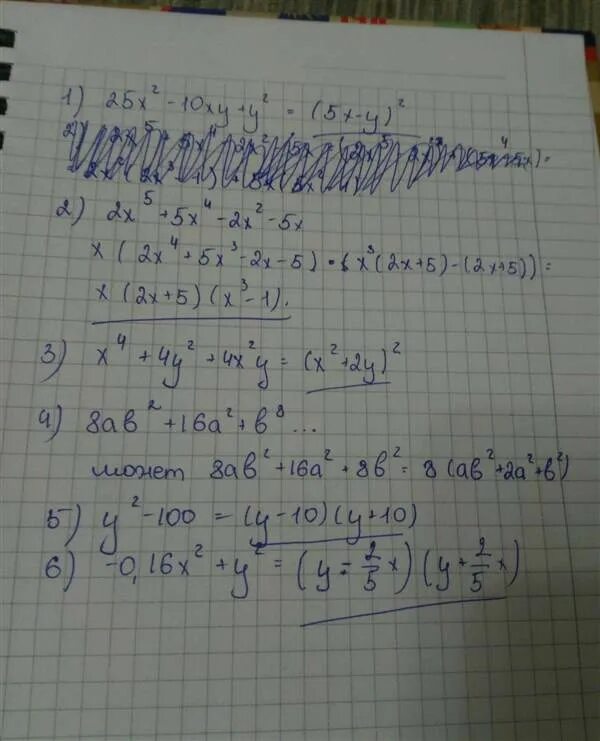 1) 25x² - 10xy + y² = (5x-y)²
2) 2x⁵ + 5x⁴ - 2x² - 5x
x (2x⁴ + 5x³ - 2x - 5) = (x³(2x+5) - (2x+5)) =
x (2x+5) (x³-1).
3) x⁴ + 4y² + 4x²y = (x² + 2y)²
4) 8ab² + 16a² + b⁸ ...
может 8ab² + 16a² + 8b² = 8 (ab² + 2a² + b²)
5) y² - 100 = (y-10)(y+10)
6) -0,16x² + y² = (y - 2/5 x) (y + 2/5 x)